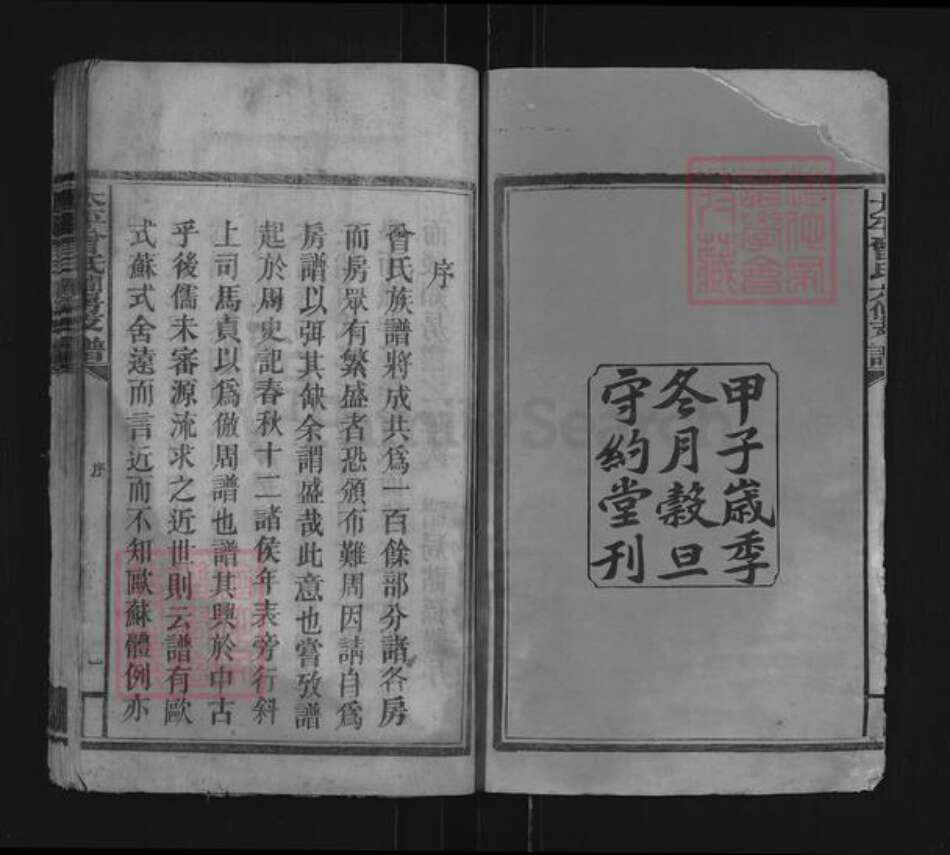 甲子歲季
冬月穀旦
守約堂刊
序
曾氏族譜將成共為一百餘部分諸各房
而房眾有繁盛者恐頒布難周因請自為
房譜以弭其缺余謂盛哉此意也嘗攷譜
起於周史記春秋十二諸侯年表旁行斜
上司馬貞以為倣周譜也譜其興於中古
乎後儒未審源流求之近世則云譜有歐
式蘇式舍遠而言近而不知歐蘇體例亦
序
一